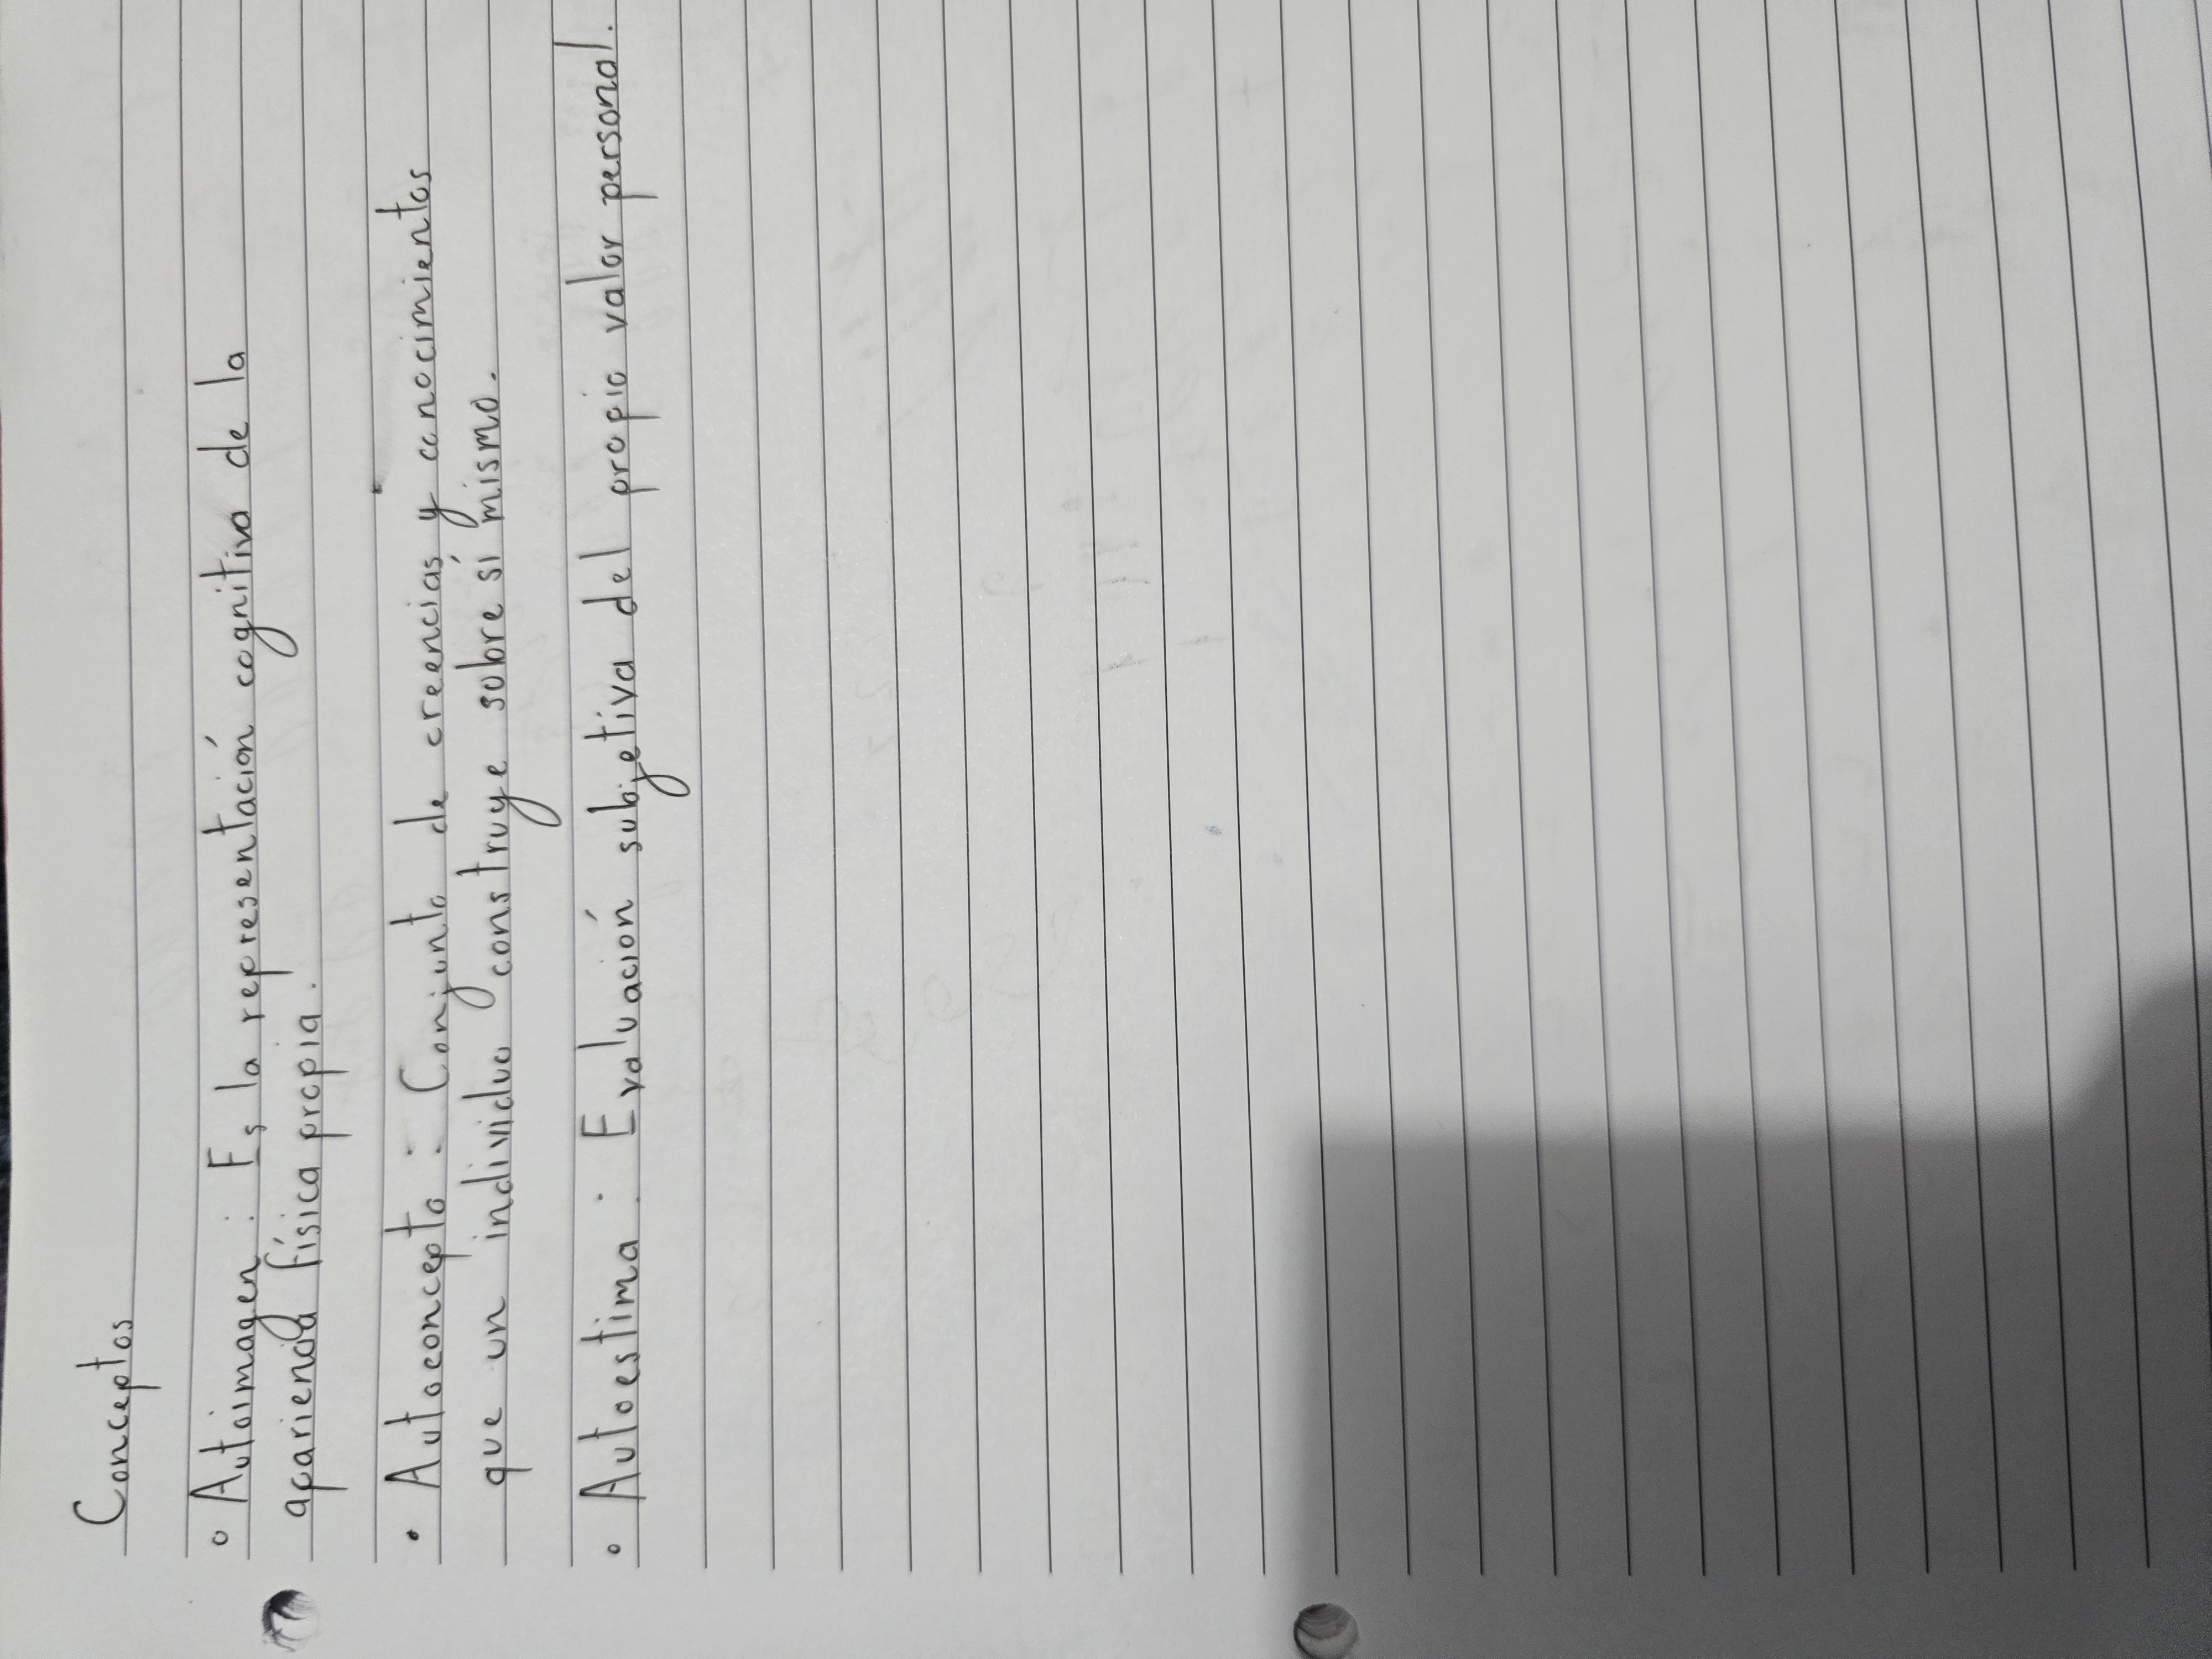 Conceptos
° Autoimagen : Es la representación cognitiva de la
apariencia física propia.
• Autoconcepto : Conjunto de creencias y conocimientos
que un individuo construye sobre sí mismo.
° Autoestima : Evaluación subjetiva del propio valor personal.